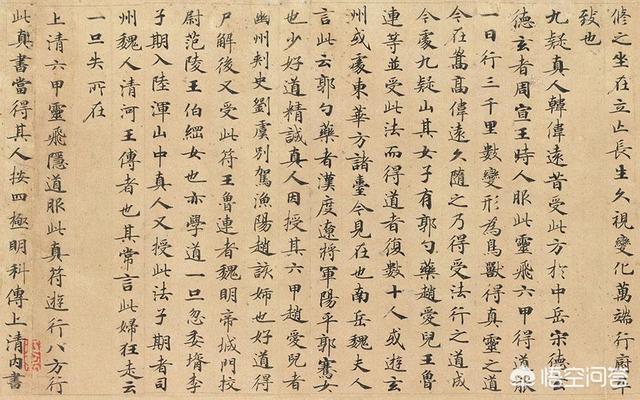 脩之坐在立亡長生久視變化萬端行廚卒
致也
九疑真人韓偉遠昔受此方於中岳宋德玄
德玄者周宣王時人服此靈飛六甲得道能
一日行三千里數變形為鳥獸得真靈之道
今在嵩高偉遠久隨之乃得受法行之道成
今處九疑山其女子有郭勺藥趙愛兒王魯
連等並受此法而得道者復數十人或遊玄
州或處東華方諸臺今見在也南岳魏夫人
言此云郭勺藥者漢度遼將軍陽平郭騫女
也少好道精誠真人因授其六甲趙愛兒者
幽州刺史劉虞別駕漁陽趙該姊也好道得
尸解後又受此符王魯連者魏明帝城門校
尉范陵王伯綱女也亦學道一旦忽委壻李
子期入陸渾山中真人又授此法子期者司
州魏人清河王傳者也其常言此婦狂走云
一旦失所在
上清六甲靈飛隱道服此真符遊行八方行
此真書當得其人按四極明科傳上清內書
悟空问答